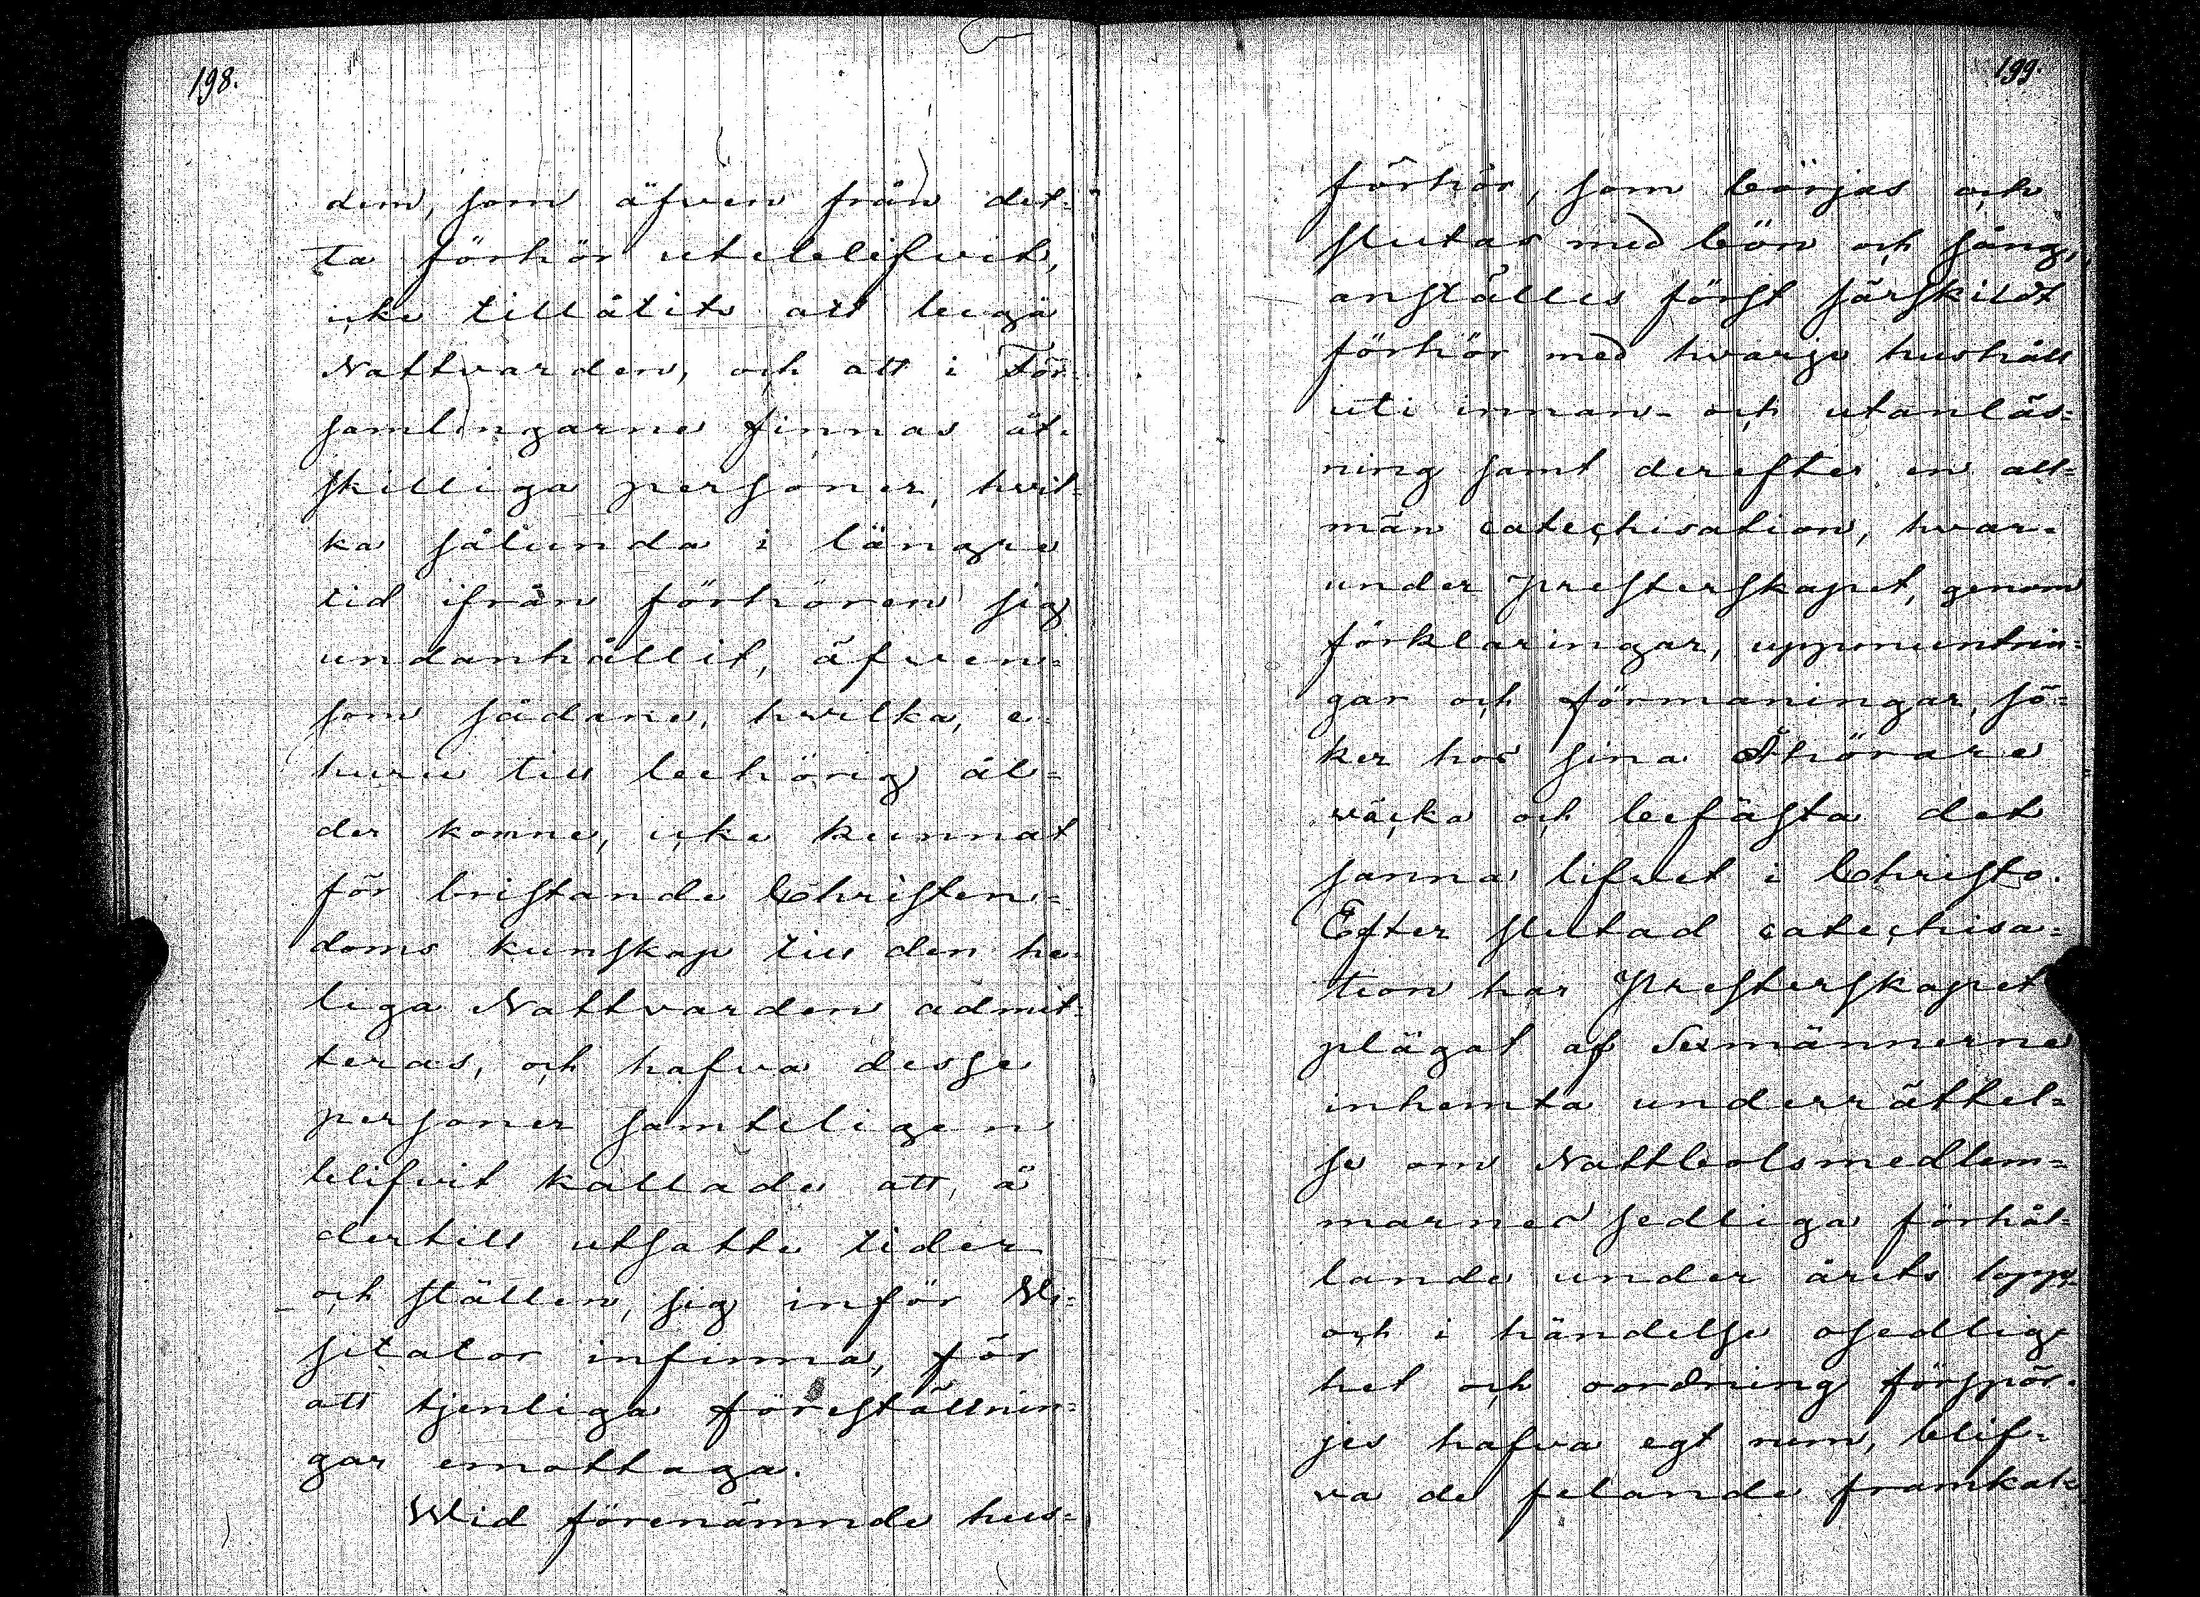 198.
dem, som äfven från det-
ta förhör uteblifvit,
icke tillåtits att begå
Nattvarden, och att i För-
samlingarne finnas åt-
skilliga personer, hvil-
ka sålunda i längre
tid ifrån förhören sig
undanhållit, äfven=
som sådane, hvilka, e-
huru till behörig ål=
der komne, icke kunnat
för bristande Christen=
doms kunskap till den he-
liga Nattvarden admit-
teras, och hafva desse
personer samteligen
blifvit kallade att, å
dertill utsatte tider
och ställen, sig inför Vi=
sitator infinna, för
att tjenliga föreställnin=
gar emottaga.
Wid förenämnde hus=
199.
förhör, som börjas och
slutas med bön och sång,
anställes först särskildt
förhör med hvarje hushåll
uti innan- och utanläs=
ning samt derefter en all=
män catechisation, hvar=
under Presterskapet, genom
förklaringar, uppmuntrin=
gar och förmaningar, sö=
ker hos sina Åhörare
väcka och befästa det
sanna lifvet i Christo.
Efter slutad catechisa=
tion har Presterskapet
plägat af Sexmännerne
inhemta underrättel=
se om Nattbolsmedlem=
marnes sedliga förhål=
lande under årets lopp
och i händelse osedlig-
het och oordning förspör-
jes hafva egt rum, blif-
va de felande framkal-